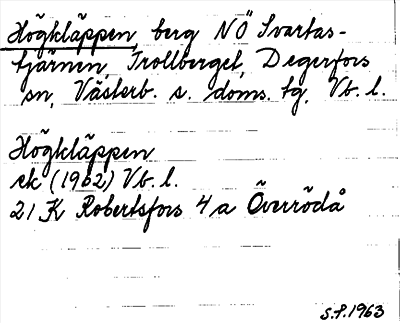 Högkläppen, berg NÖ Svartas-
tjärnen, Trollberget, Degerfors
sn, Västerb. s. doms. tg, Vb. l.
Högkläppen
ek (1962) Vb. l.
21 K Robertsfors 4 a Överrödå
S.P. 1963